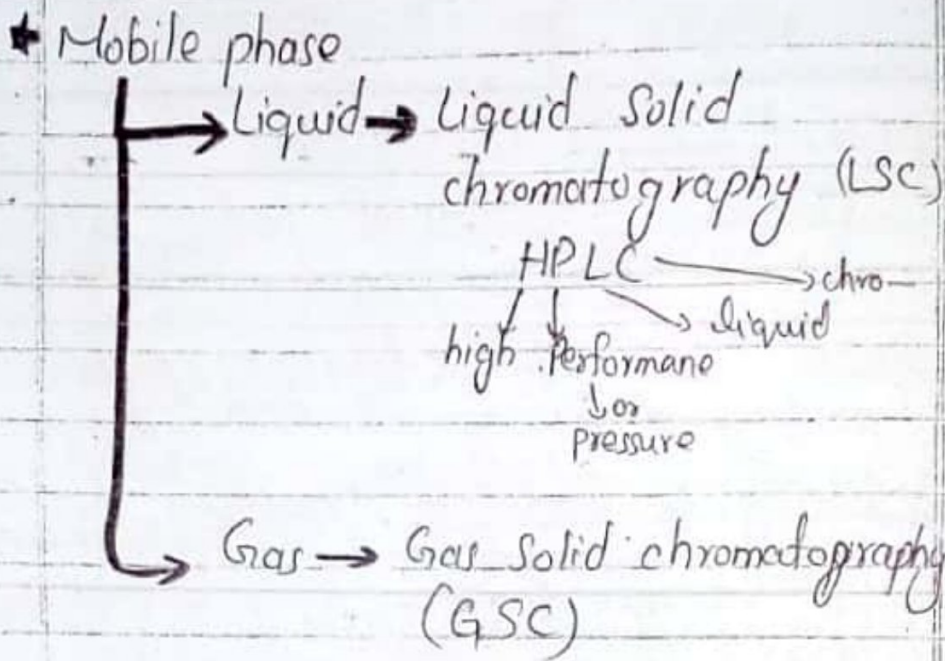 ★ Mobile phase
→ Liquid → Liquid Solid
chromatography (LSC)
HPLC → chro—
→ liquid
high Performane
↓ or
pressure
→ Gas → Gas Solid chromatography
(GSC)